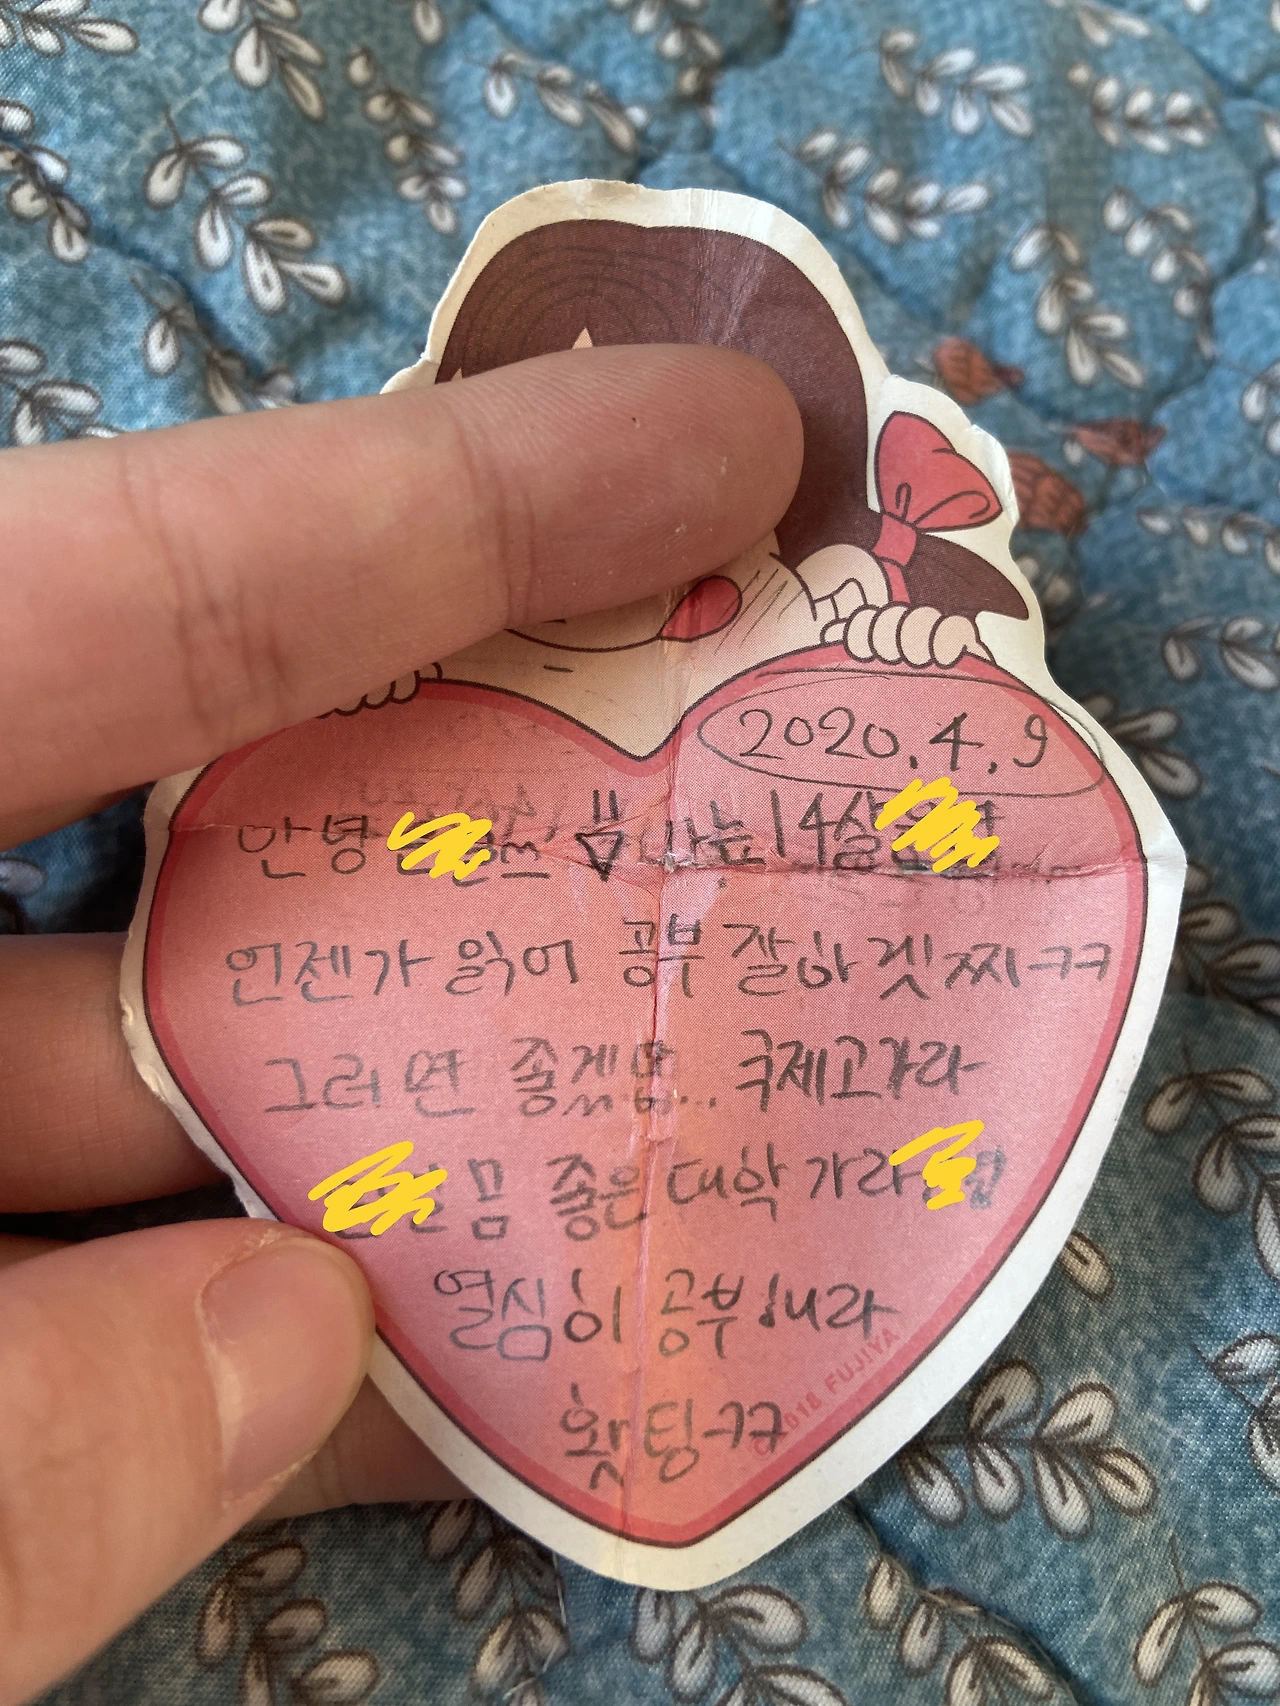 2020.4.9
안녕 나는 14살
언젠가 읽어 공부 잘하겟찌ㅋㅋ
그러면 좋겠ㅁ... 국제고가라
좋은 대학 가라
열심히 공부해라
홧팅ㅋㅋ
© 2018 FUJIYA